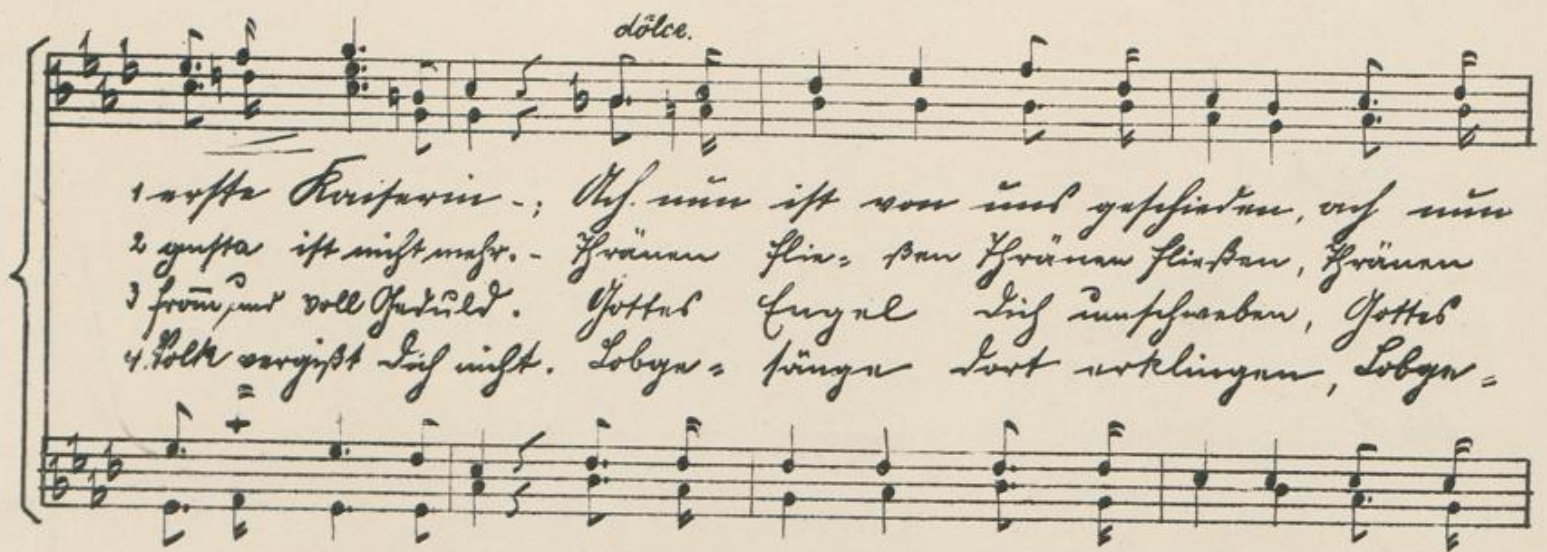 dolce.
1 erste Kaiserin -; Ach nun ist von uns geschieden, ach nun
2 gusta ist nicht mehr. - Thränen flie= ßen Thränen fließen, Thränen
3 from̄, und voll Geduld. Gottes Engel Dich umschweben, Gottes
4. Volk vergißt Dich nicht. Lobge= sänge dort erklingen, Lobge=